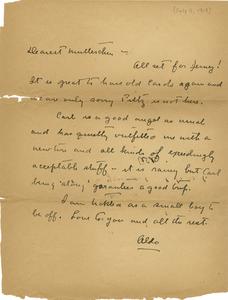 Dearest Mutterchen —
All set for Jersey!
It is great to have old Carl again and
we are only sorry Patty is not here.
Carl is a good angel as usual
and has quietly outfitted me with a
new tire and all kinds of exceedingly
acceptable stuff — it is rainy but Carl
being a good trip.
I am tickled as a small boy to
be off. Love to you and all the rest.
Aldo